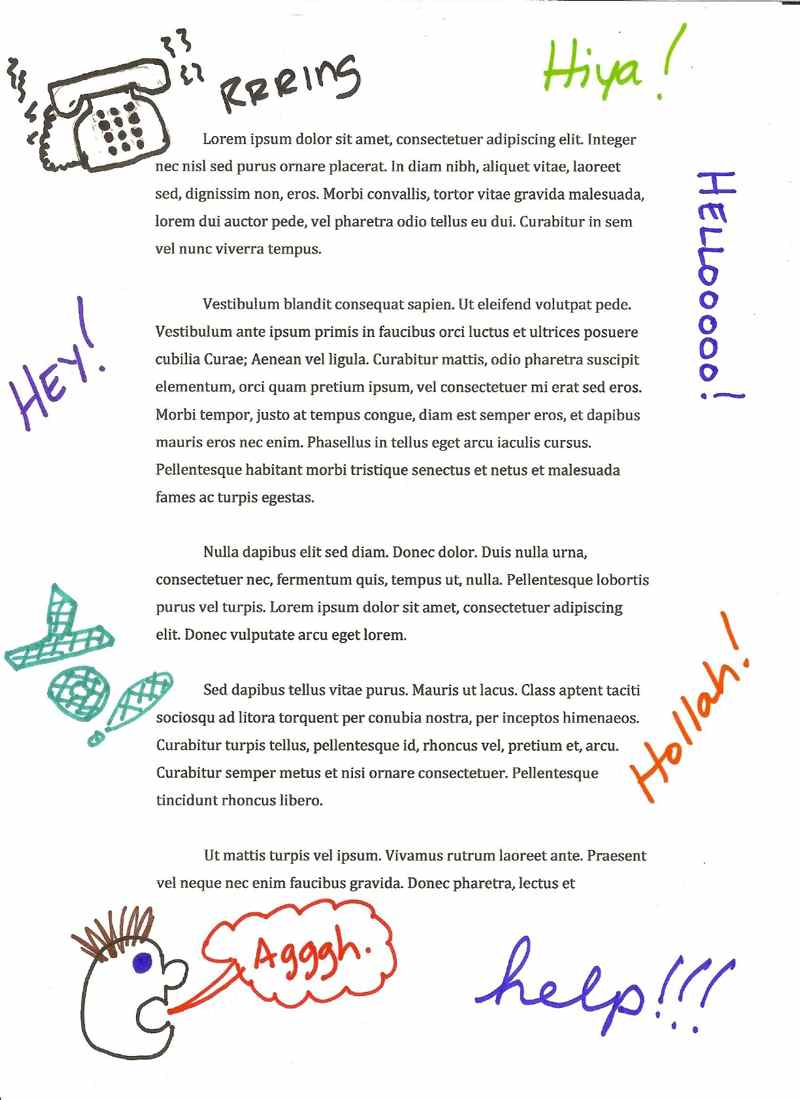 RRRING
Hiya!
Lorem ipsum dolor sit amet, consectetuer adipiscing elit. Integer
nec nisl sed purus ornare placerat. In diam nibh, aliquet vitae, laoreet
sed, dignissim non, eros. Morbi convallis, tortor vitae gravida malesuada,
lorem dui auctor pede, vel pharetra odio tellus eu dui. Curabitur in sem
vel nunc viverra tempus.
HELLOOOOO!
Vestibulum blandit consequat sapien. Ut eleifend volutpat pede.
Vestibulum ante ipsum primis in faucibus orci luctus et ultrices posuere
cubilia Curae; Aenean vel ligula. Curabitur mattis, odio pharetra suscipit
elementum, orci quam pretium ipsum, vel consectetuer mi erat sed eros.
Morbi tempor, justo at tempus congue, diam est semper eros, et dapibus
mauris eros nec enim. Phasellus in tellus eget arcu iaculis cursus.
Pellentesque habitant morbi tristique senectus et netus et malesuada
fames ac turpis egestas.
HEY!
Nulla dapibus elit sed diam. Donec dolor. Duis nulla urna,
consectetuer nec, fermentum quis, tempus ut, nulla. Pellentesque lobortis
purus vel turpis. Lorem ipsum dolor sit amet, consectetuer adipiscing
elit. Donec vulputate arcu eget lorem.
Yo!
Sed dapibus tellus vitae purus. Mauris ut lacus. Class aptent taciti
sociosqu ad litora torquent per conubia nostra, per inceptos himenaeos.
Curabitur turpis tellus, pellentesque id, rhoncus vel, pretium et, arcu.
Curabitur semper metus et nisi ornare consectetuer. Pellentesque
tincidunt rhoncus libero.
Hollah!
Ut mattis turpis vel ipsum. Vivamus rutrum laoreet ante. Praesent
vel neque nec enim faucibus gravida. Donec pharetra, lectus et
Agggh.
help!!!